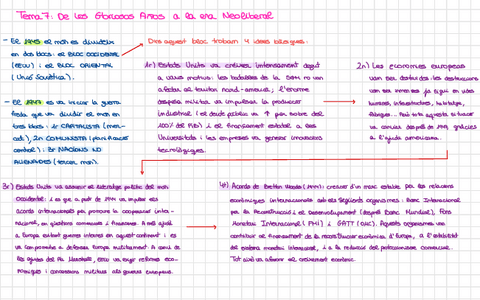 Tema 7: De los Gloriosos Anos a la era Neoliberal
- El 1945 el mon es divideix
en dos blocs: el BLOC OCCIDENTAL
(EEUU) i el BLOC ORIENTAL
(Unió Soviètica).
- El 1947 es va iniciar la guerra
freda que va dividir el mon en
tres blocs: 1r CAPITALISTA (mer-
cat), 2n COMUNISTA (planificació
central) i 3r NACIONS NO
ALINEADES (tercer mon).
Dins aquest bloc trobam 4 idees bàsiques:
1r) Estats Units va créixer intensament degut
a varis motius: les batalles de la SGM no van
afectar al territori nord-americà; l'enorme
despesa militar va impulsar la producció
industrial (el deute públic va ↑ per sobre del
100% del PIB) i el finançament estatal a les
Universitats i les empreses va generar innovacions
tecnològiques.
2n) Les economies europees
van ser destruïdes: les destruccions
van ser immenses ja sigui en vides
humanes, infraestructures, habitatge,
fàbriques... Però tota aquesta situació
va canviar després de 1947 gràcies
a l'ajuda americana.
3r) Estats Units va assumir el lideratge polític del món
Occidental: i es que a partir de 1944 va impulsar els
acords internacionals per promoure la cooperació inter-
nacional, en qüestions comercials i financeres. A més ajudà
a Europa evitant guerres internes en aquest continent i es
va comprometre a defensar Europa militarment a canvi de
les ajudes del Pla Marshall, EEUU va exigir reformes eco-
nòmiques i concessions militars als governs europeus.
4t) Acords de Bretton Woods (1944): creació d'un marc estable per les relacions
econòmiques internacionals amb els següents organismes: Banc Internacional
per la Reconstrucció i el Desenvolupament (després Banc Mundial), Fons
Monetari Internacional (FMI) i GATT (OMC). Aquests organismes van
contribuir al finançament de la reconstrucció econòmica d'Europa, a l'estabilitat
del sistema monetari internacional, i a la reducció del proteccionisme comercial.
Tot això va afavorir el creixement econòmic.